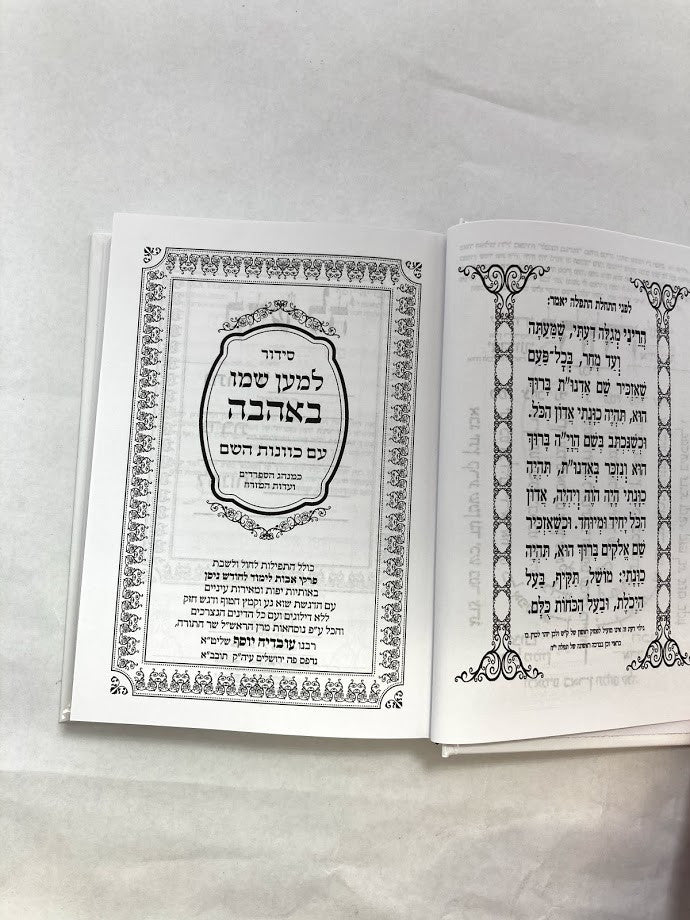 סידור
למען שמו
באהבה
עם כוונות השם
כמנהג הספרדים
ועדות המזרח
כולל התפילות לחול ולשבת
פרקי אבות לימוד לחודש ניסן
באותיות יפות ומאירות עיניים
עם הדגשת שוא נע וקמץ חטוף ודגש חזק
ללא דילוגים ועם כל הדינים הנצרכים
והכל ע"פ נוסחאות מרן הראש"ל שר התורה,
רבנו עובדיה יוסף שליט"א
נדפס פה ירושלים עיה"ק תובב"א
לפני התחלת התפלה יאמר:
הֲרֵינִי מְגַלֶּה דַּעְתִּי, שֶׁמֵּעַתָּה
וְעַד מָחָר, בְּכָל־פַּעַם
שֶׁאַזְכִּיר שֵׁם אֲדֹנוּ"ת בָּרוּךְ
הוּא, תִּהְיֶה כַּוָּנָתִי אֲדוֹן הַכֹּל.
וּכְשֶׁנִּכְתַּב בְּשֵׁם הֲוָיָ"ה בָּרוּךְ
הוּא וְנִזְכַּר בְּאַדְנוּ"ת, תִּהְיֶה
כַּוָּנָתִי הָיָה הֹוֶה וְיִהְיֶה, אֲדוֹן
הַכֹּל יָחִיד וּמְיֻחָד. וּכְשֶׁאַזְכִּיר
שֵׁם אֱלֹקִים בָּרוּךְ הוּא, תִּהְיֶה
כַּוָּנָתִי: מוֹשֵׁל, תַּקִּיף, בַּעַל
הַיְכֹלֶת, וּבַעַל הַכֹּחוֹת כֻּלָּם.
גילוי דעת זה אינו מועיל לפסוק ראשון של ק"ש ולכן יזהר לכוין בו
כראוי וכן בברכה ראשונה של תפלה י"ח